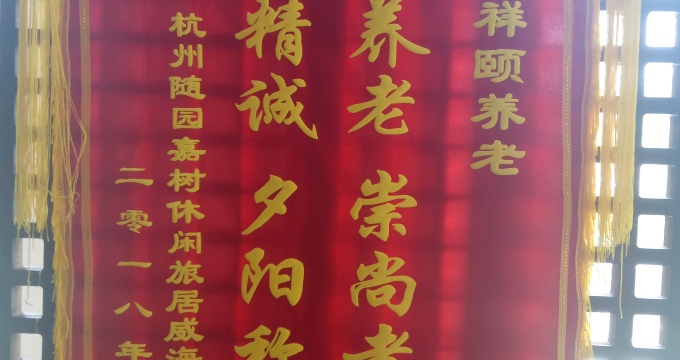 祥颐养老
养老 崇尚老
精诚 夕阳称
杭州随园嘉树休闲旅居威海
二零一八年